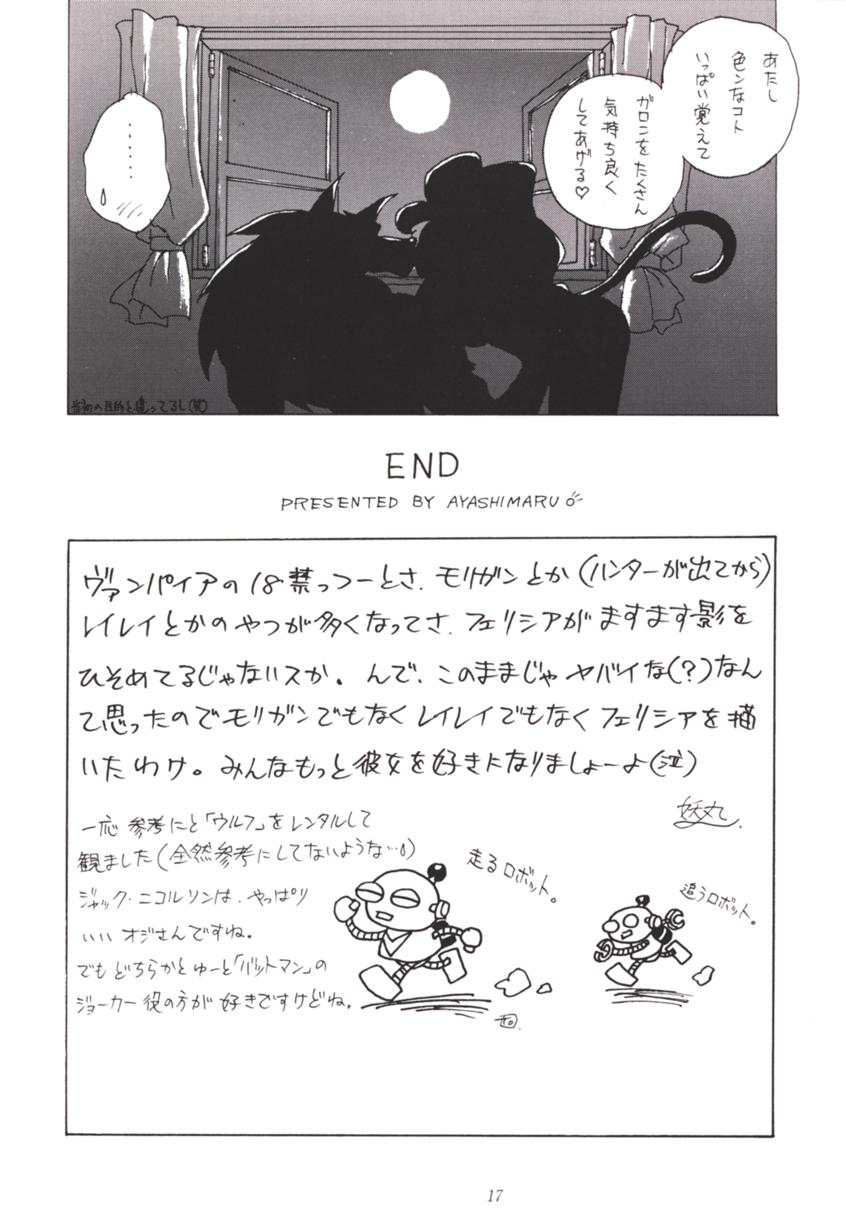 あたし
色ンなコト
いっぱい覚えて
ガロンをたくさん
気持ち良く
してあげる♡
・・・・・・
当初の目的と違ってるし(笑)
END
PRESENTED BY AYASHIMARU
ヴァンパイアの18禁っつーとさ、モリガンとか(ハンターが出てから)
レイレイとかのやつが多くなってさ、フェリシアがますます影を
ひそめてるじゃないスか。んで、このままじゃヤバイな(?)なん
て思ったのでモリガンでもなくレイレイでもなくフェリシアを描
いたわけ。みんなもっと彼女を好きになりましょーよ(泣)
妖丸.
一応参考にと「ウルフ」をレンタルして
観ました(全然参考にしてないような…)
ジャック・ニコルソンは、やっぱり
いいオジさんですね。
でもどちらかとゆーと「バットマン」の
ジョーカー役の方が好きですけどね。
走るロボット。
追うロボット。
17